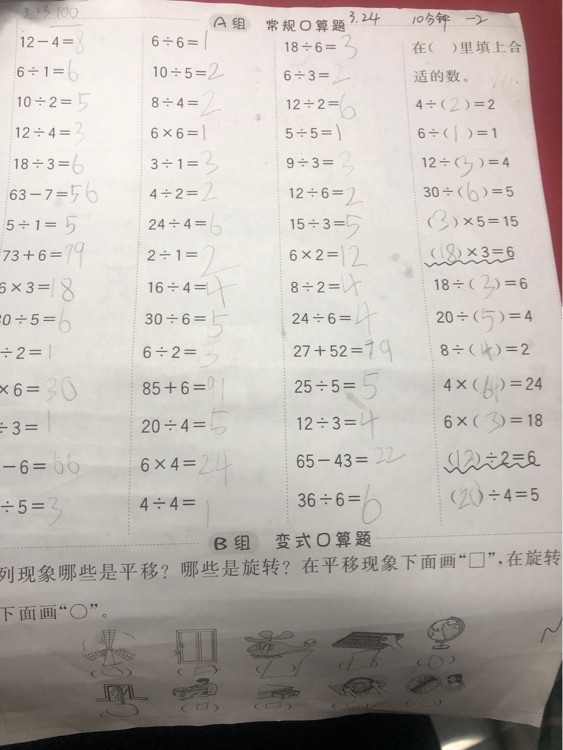 3.13,100
A组 常规口算题
3.24 10分钟 -2
12-4=8
6÷1=6
10÷2=5
12÷4=3
18÷3=6
63-7=56
5÷1=5
73+6=79
6×3=18
0÷5=6
÷2=1
×6=30
÷3=1
-6=66
÷5=3
6÷6=1
10÷5=2
8÷4=2
6×6=1
3÷1=3
4÷2=2
24÷4=6
2÷1=2
16÷4=4
30÷6=5
6÷2=3
85+6=91
20÷4=5
6×4=24
4÷4=1
18÷6=3
6÷3=2
12÷2=6
5÷5=1
9÷3=3
12÷6=2
15÷3=5
6×2=12
8÷2=4
24÷6=4
27+52=79
25÷5=5
12÷3=4
65-43=22
36÷6=6
在( )里填上合
适的数。
4÷(2)=2
6÷(1)=1
12÷(3)=4
30÷(6)=5
(3)×5=15
(18)×3=6
18÷(3)=6
20÷(5)=4
8÷(4)=2
4×(6)=24
6×(3)=18
(12)÷2=6
(20)÷4=5
B组 变式口算题
列现象哪些是平移？哪些是旋转？在平移现象下面画“□”，在旋转
下面画“○”。